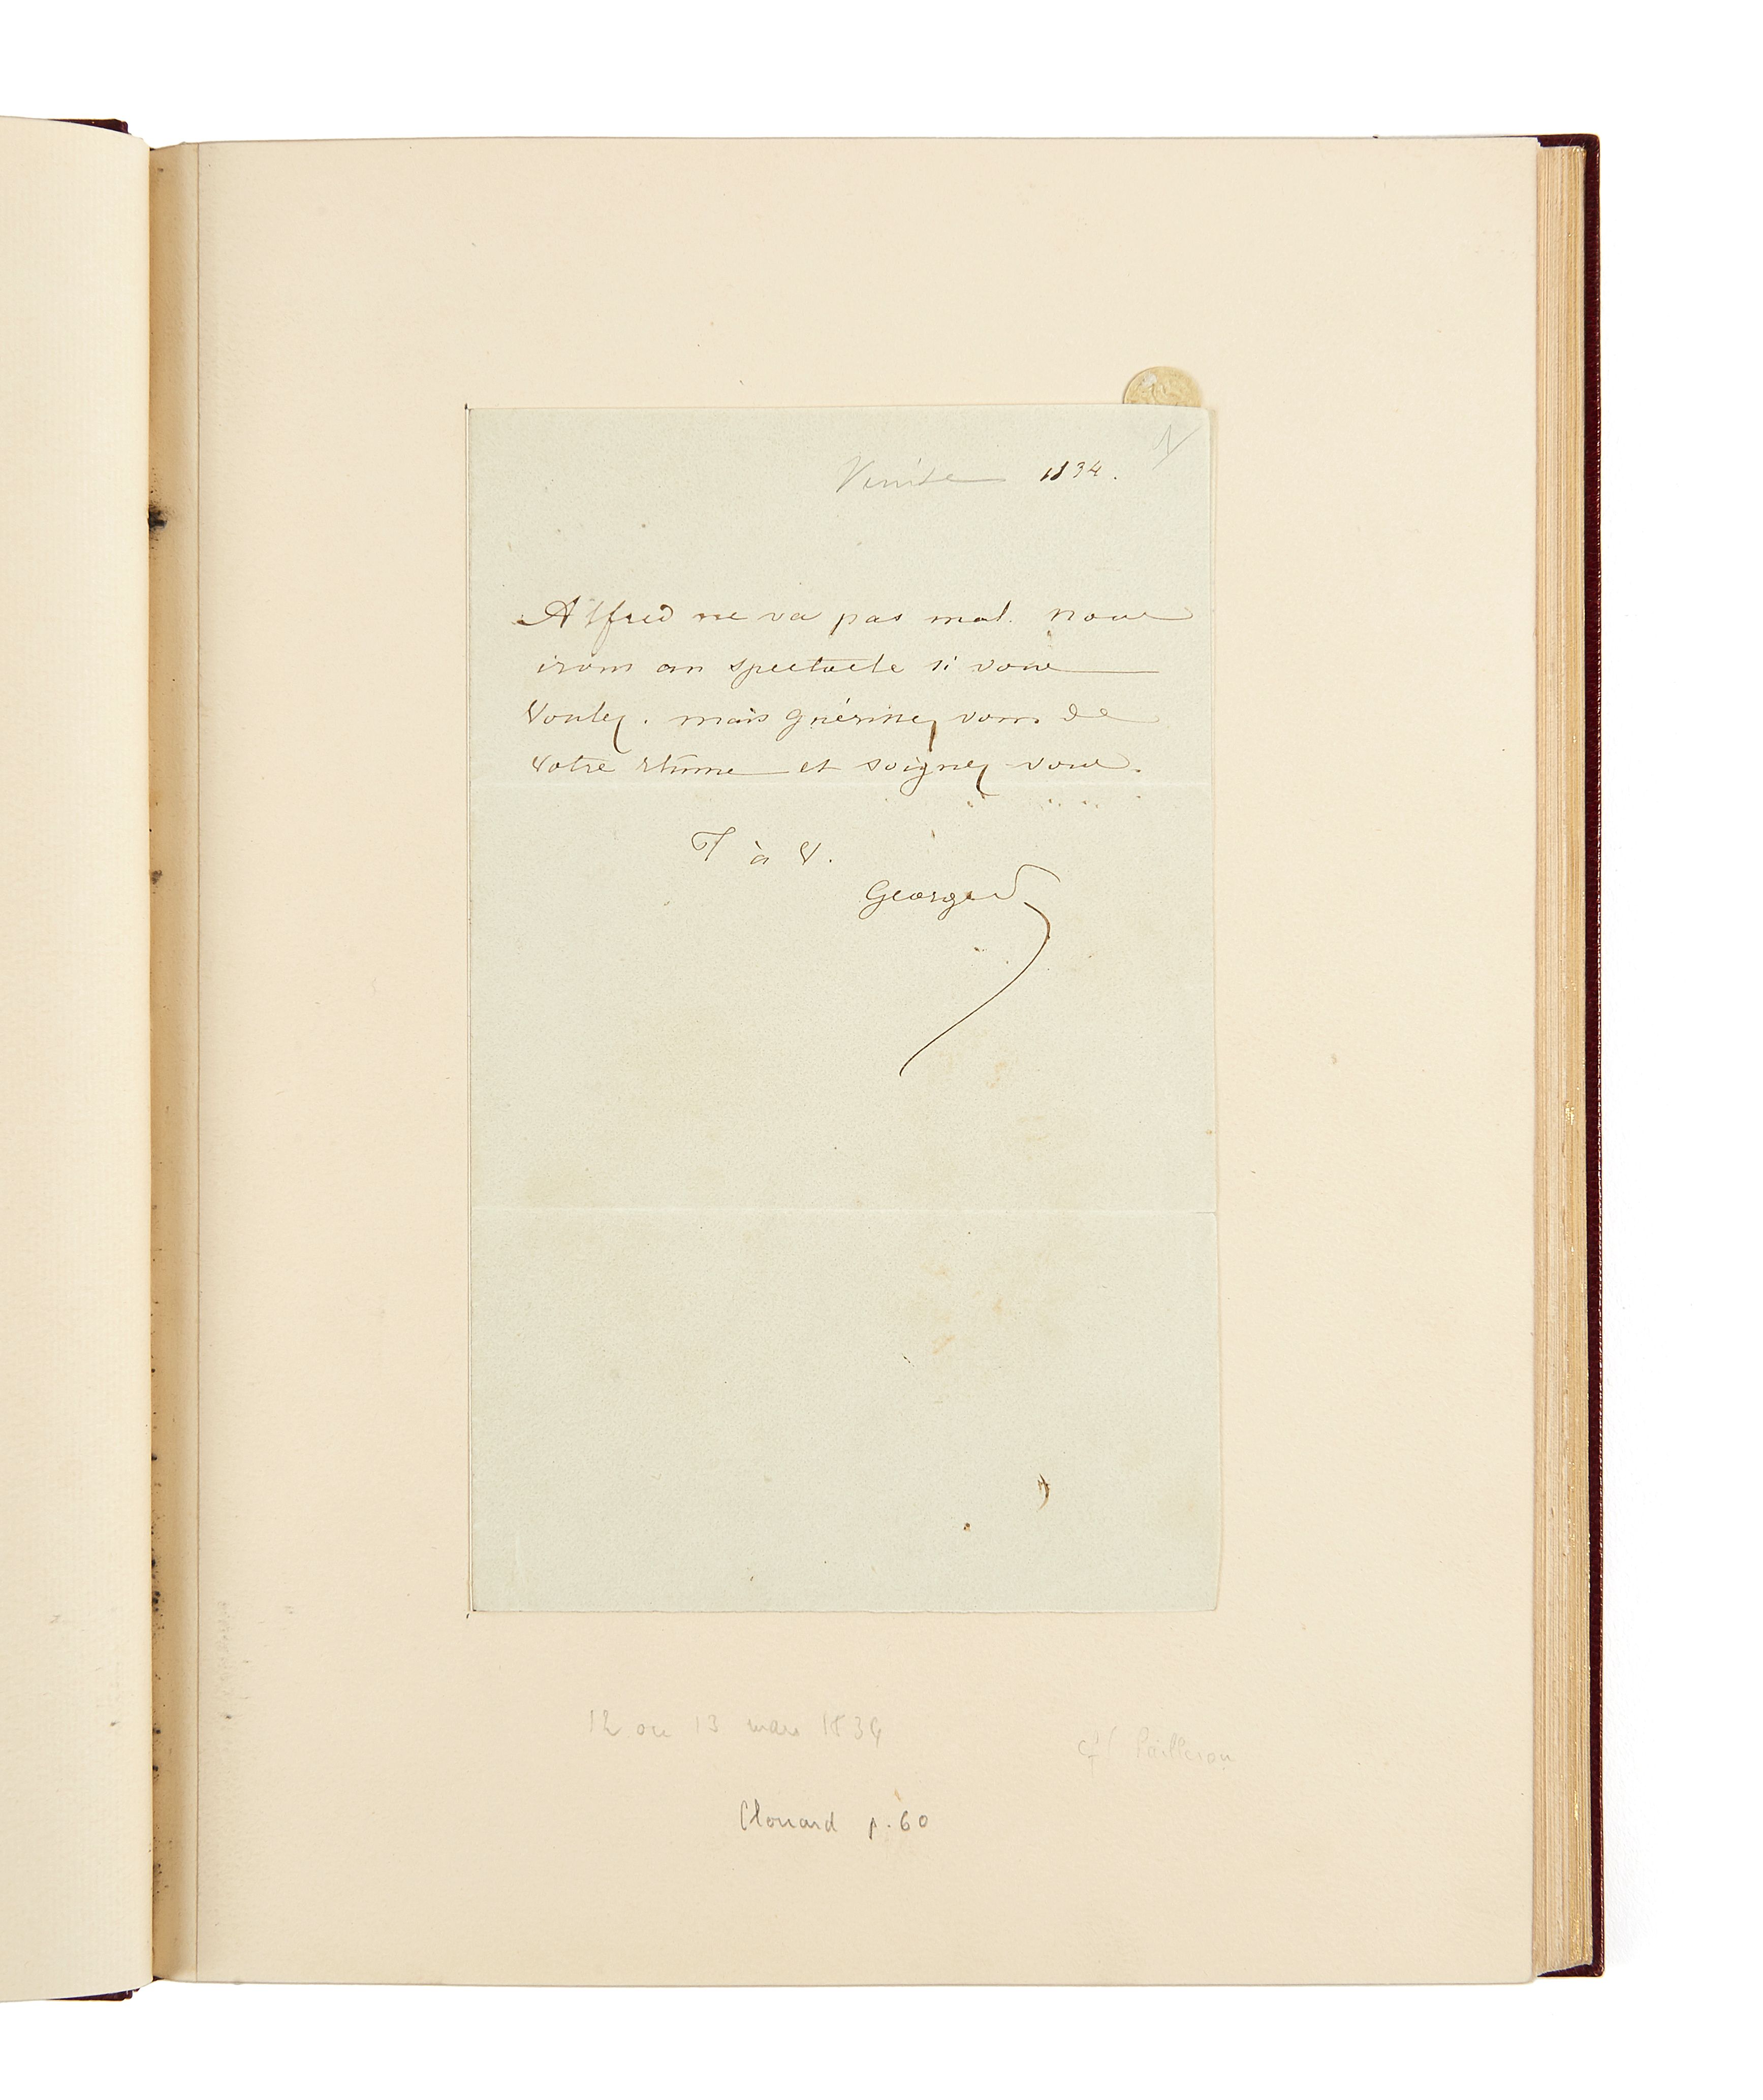 Venise 1834.
Alfred ne va pas mal. nous
irons au spectacle si vous
voulez. mais guérissez vous de
votre rhume et soignez vous.
T à V.
George
12 ou 13 mars 1834
cf Pailleron
Clouard p. 60